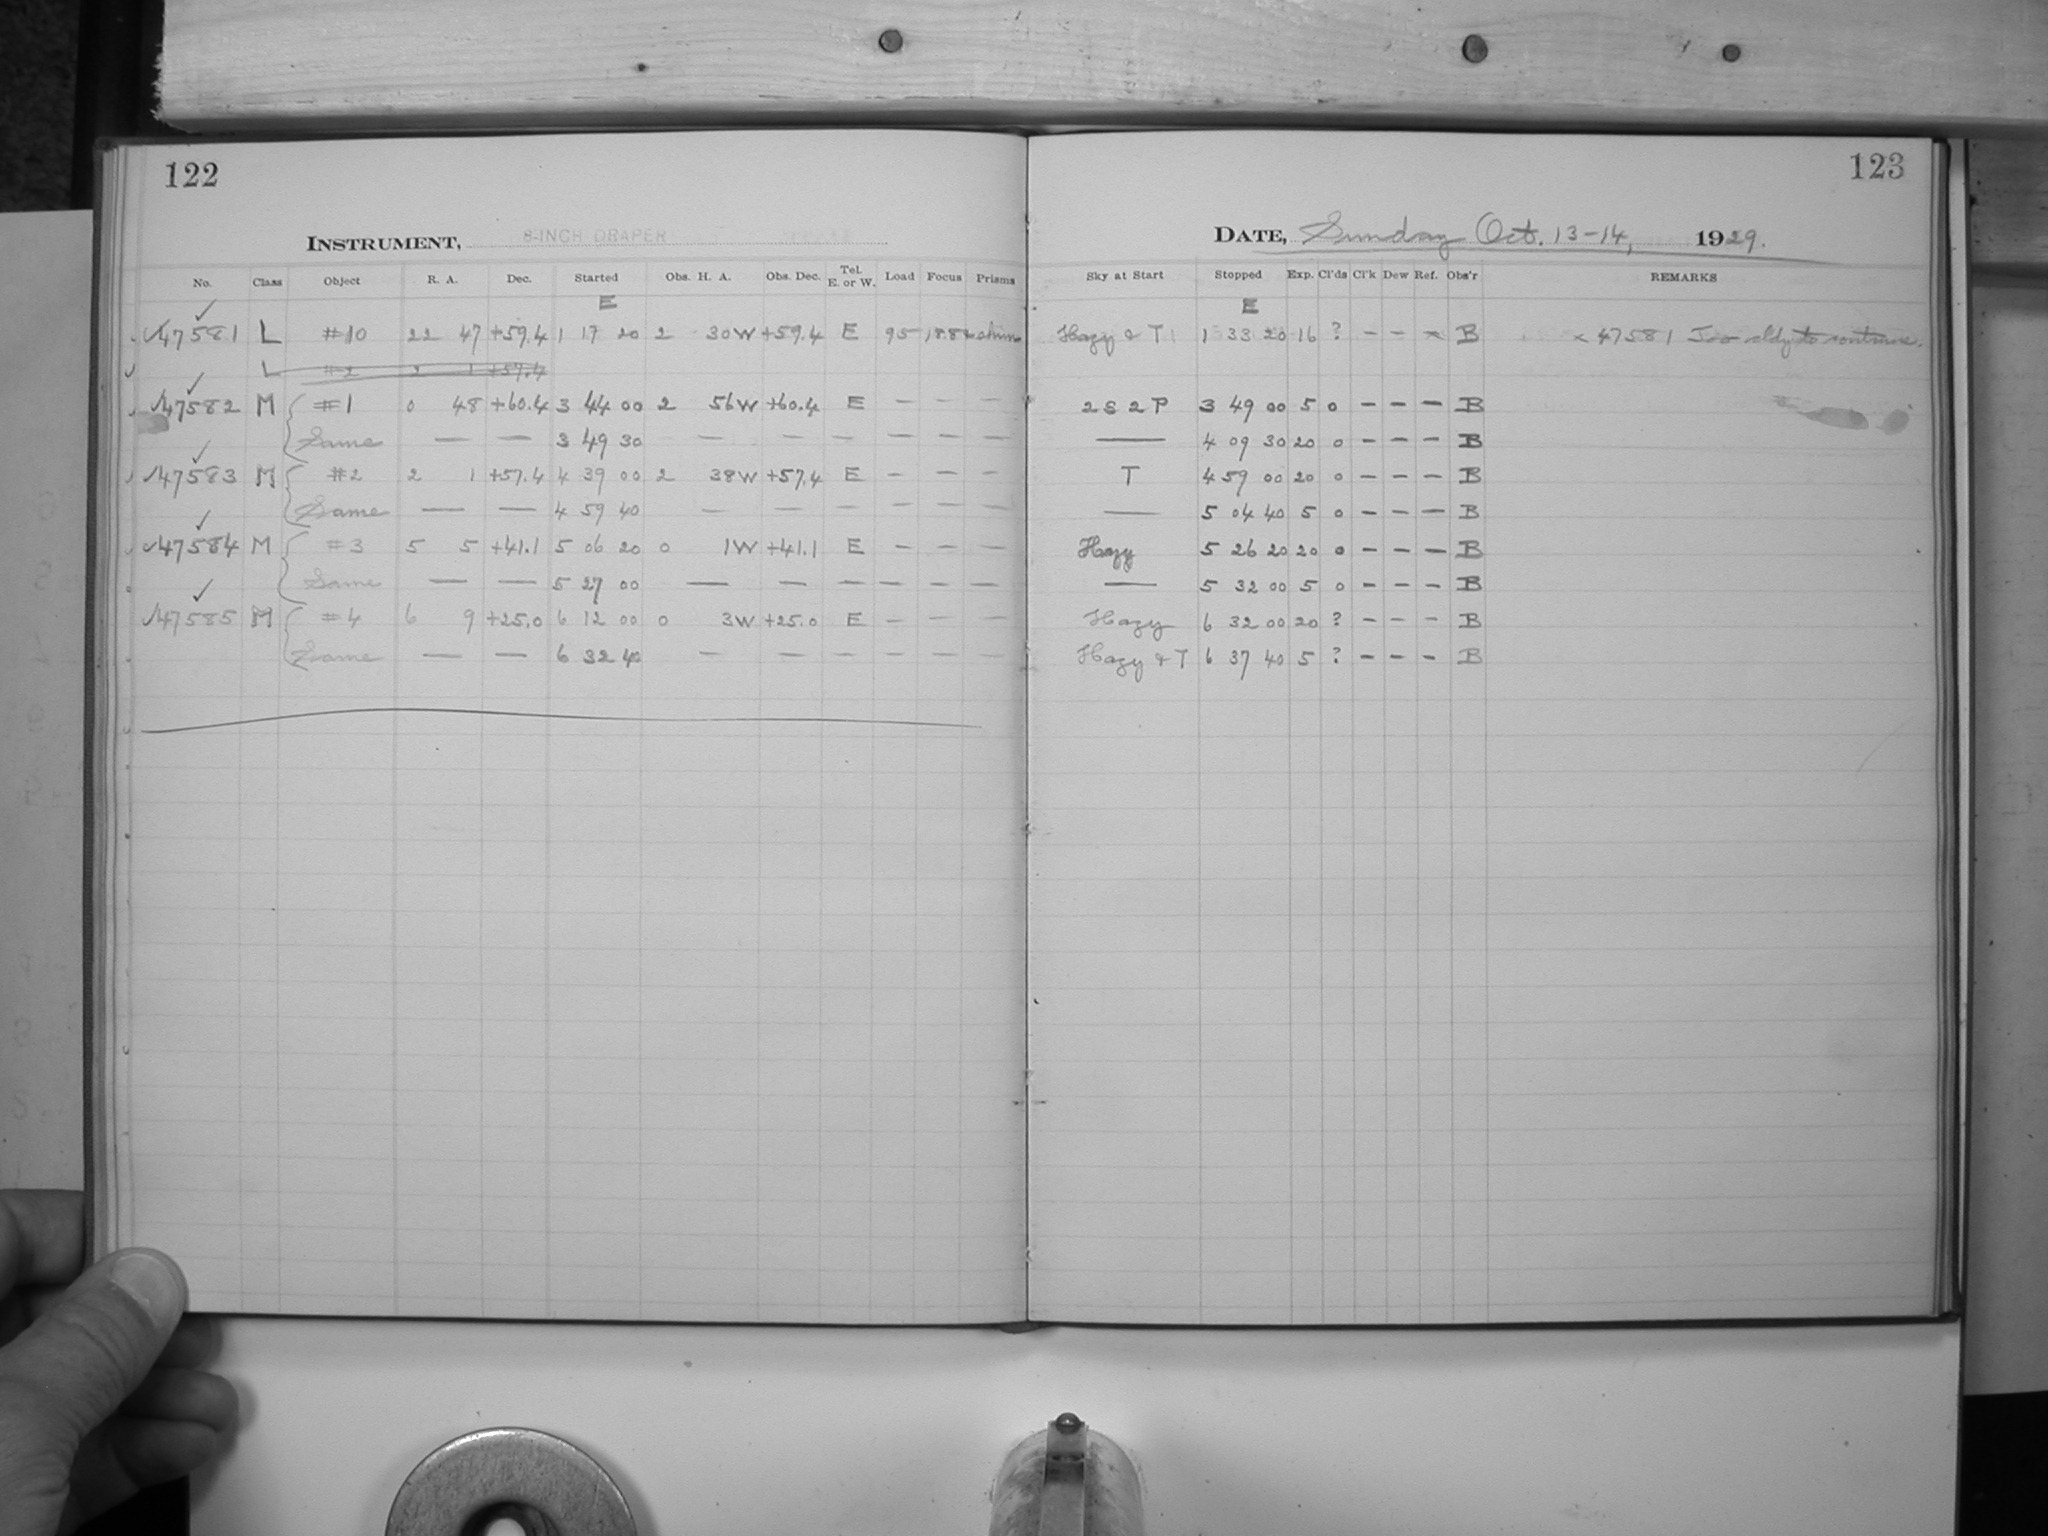 122
INSTRUMENT, 8-INCH DRAPER
No. Class Object R. A. Dec. Started Obs. H. A. Obs. Dec. Tel. E. or W. Load Focus Prisms
E
47581 L #10 22 47 +59.4 1 17 20 2 30W +59.4 E 95
L #2 2 1 +57.4
47582 M #1 0 48 +60.4 3 44 00 2 56W +60.4 E — — —
Same — — 3 49 30 — — — — — —
47583 M #2 2 1 +57.4 4 39 00 2 38W +57.4 E — — —
Same — — 4 59 40 — — — — — —
47584 M #3 5 5 +41.1 5 06 20 0 1W +41.1 E — — —
Same — — 5 27 00 — — — — — —
47585 M #4 6 9 +25.0 6 12 00 0 3W +25.0 E — — —
Same — — 6 32 40 — — — — — —
123
DATE, Sunday Oct. 13-14, 1929.
Sky at Start Stopped Exp. Cl'ds Cl'k Dew Ref. Obs'r REMARKS
E
Hazy & T 1 33 20 16 ? — — × B × 47581 Too cldy to continue.
2 S 2 P 3 49 00 5 0 — — — B
— 4 09 30 20 0 — — — B
T 4 59 00 20 0 — — — B
— 5 04 40 5 0 — — — B
Hazy 5 26 20 20 0 — — — B
— 5 32 00 5 0 — — — B
Hazy 6 32 00 20 ? — — — B
Hazy & T 6 37 40 5 ? — — — B